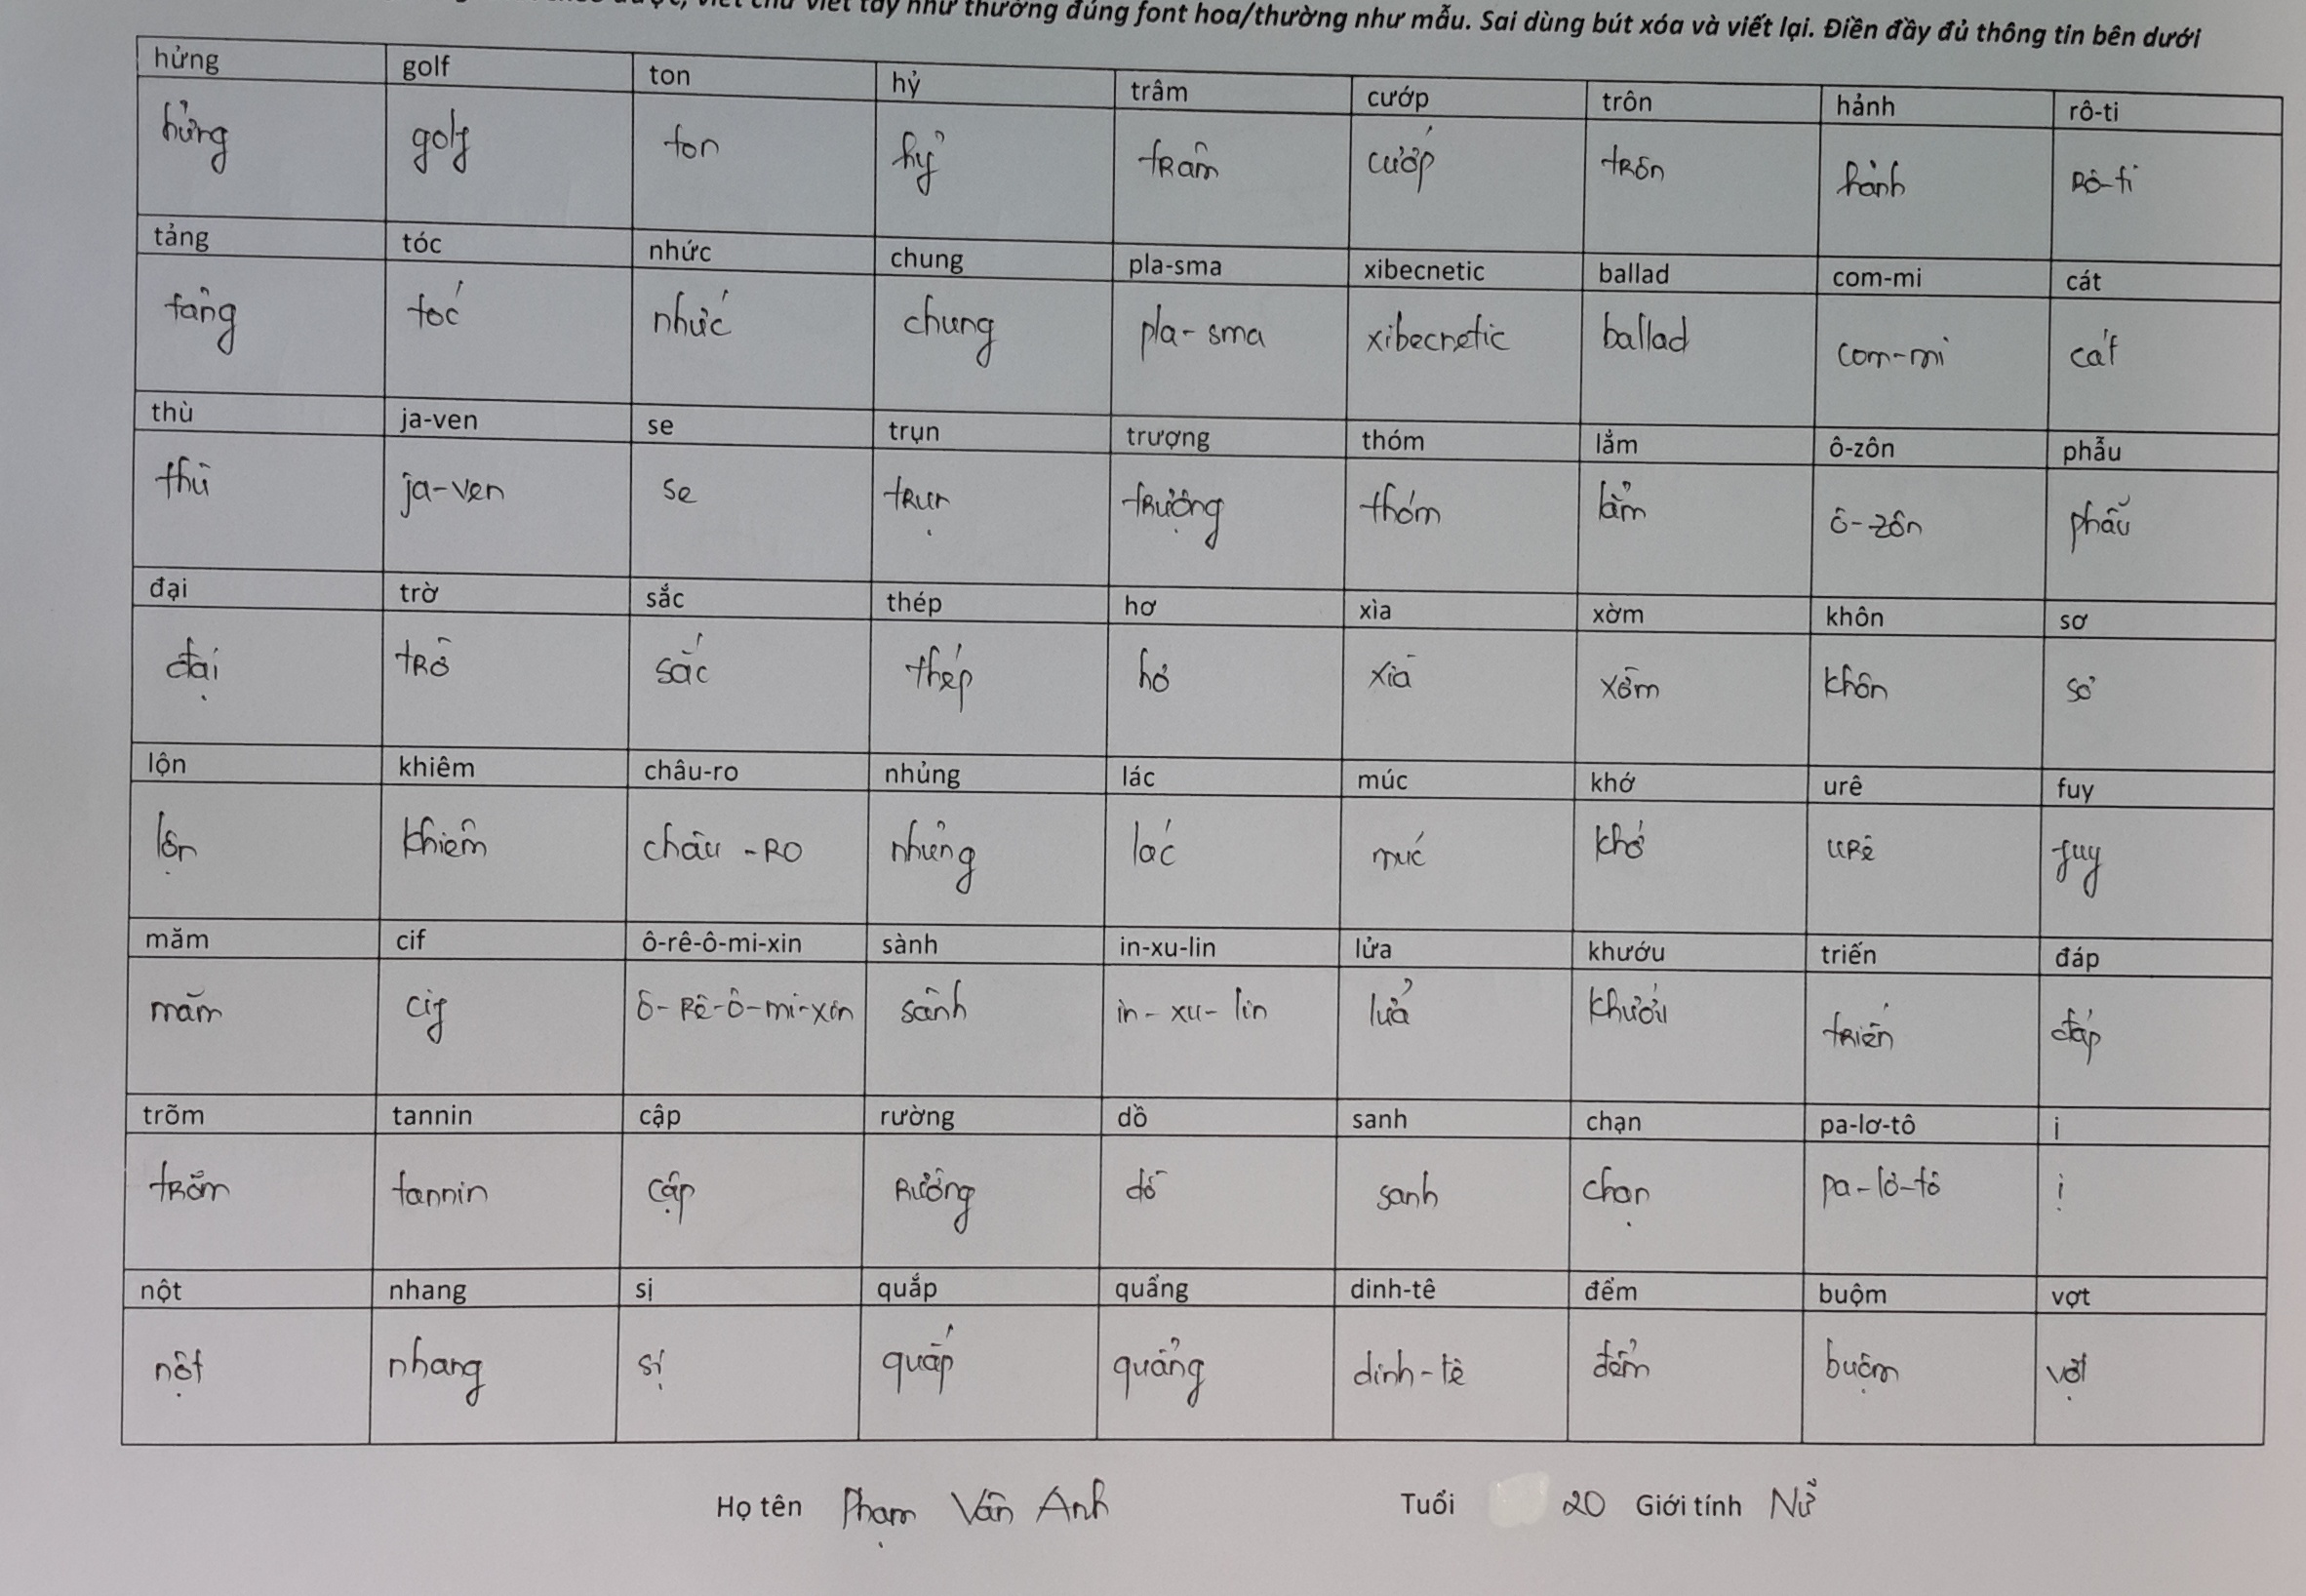 viết chữ viết tay như thường đúng font hoa/thường như mẫu. Sai dùng bút xóa và viết lại. Điền đầy đủ thông tin bên dưới
hửng golf ton hỷ trâm cướp trôn hảnh rô-ti
hửng golf ton hỷ trâm cướp trôn hảnh rô-ti
tảng tóc nhức chung pla-sma xibecnetic ballad com-mi cát
tảng tóc nhức chung pla-sma xibecnetic ballad com-mi cát
thù ja-ven se trụn trượng thóm lẳm ô-zôn phẫu
thù ja-ven se trụn trượng thóm lẳm ô-zôn phẫu
đại trờ sắc thép hơ xìa xờm khôn sơ
đại trờ sắc thép hơ xìa xờm khôn sơ
lộn khiêm châu-ro nhủng lác múc khớ urê fuy
lộn khiêm châu -ro nhủng lác múc khớ urê fuy
măm cif ô-rê-ô-mi-xin sành in-xu-lin lửa khướu triến đáp
măm cif ô-rê-ô-mi-xin sành in-xu-lin lửa khướu triến đáp
trõm tannin cập rường dồ sanh chạn pa-lơ-tô ị
trõm tannin cập rường dồ sanh chạn pa-lơ-tô ị
nột nhang sị quắp quẩng dinh-tê đểm buộm vợt
nột nhang sị quắp quẩng dinh-tê đểm buộm vợt
Họ tên Phạm Vân Anh Tuổi 20 Giới tính Nữ